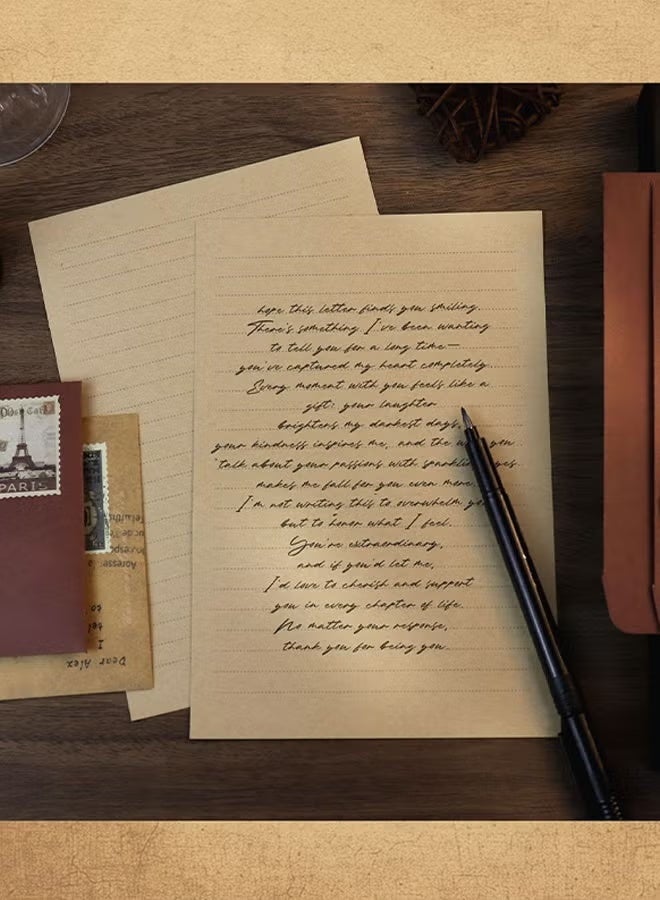 hope this letter finds you smiling.
There's something I've been wanting
to tell you for a long time—
you've captured my heart completely.
Every moment with you feels like a
gift: your laughter
brightens my darkest days,
your kindness inspires me, and the you
talk about your passions with
makes me fall for you even more.
I'm not writing this to overwhelm
but to honor what I feel.
You're extraordinary,
and if you'd let me,
I'd love to cherish and support
you in every chapter of life.
No matter your response,
thank you for being you.
PARIS
Dear Alex
I
to
Adresse